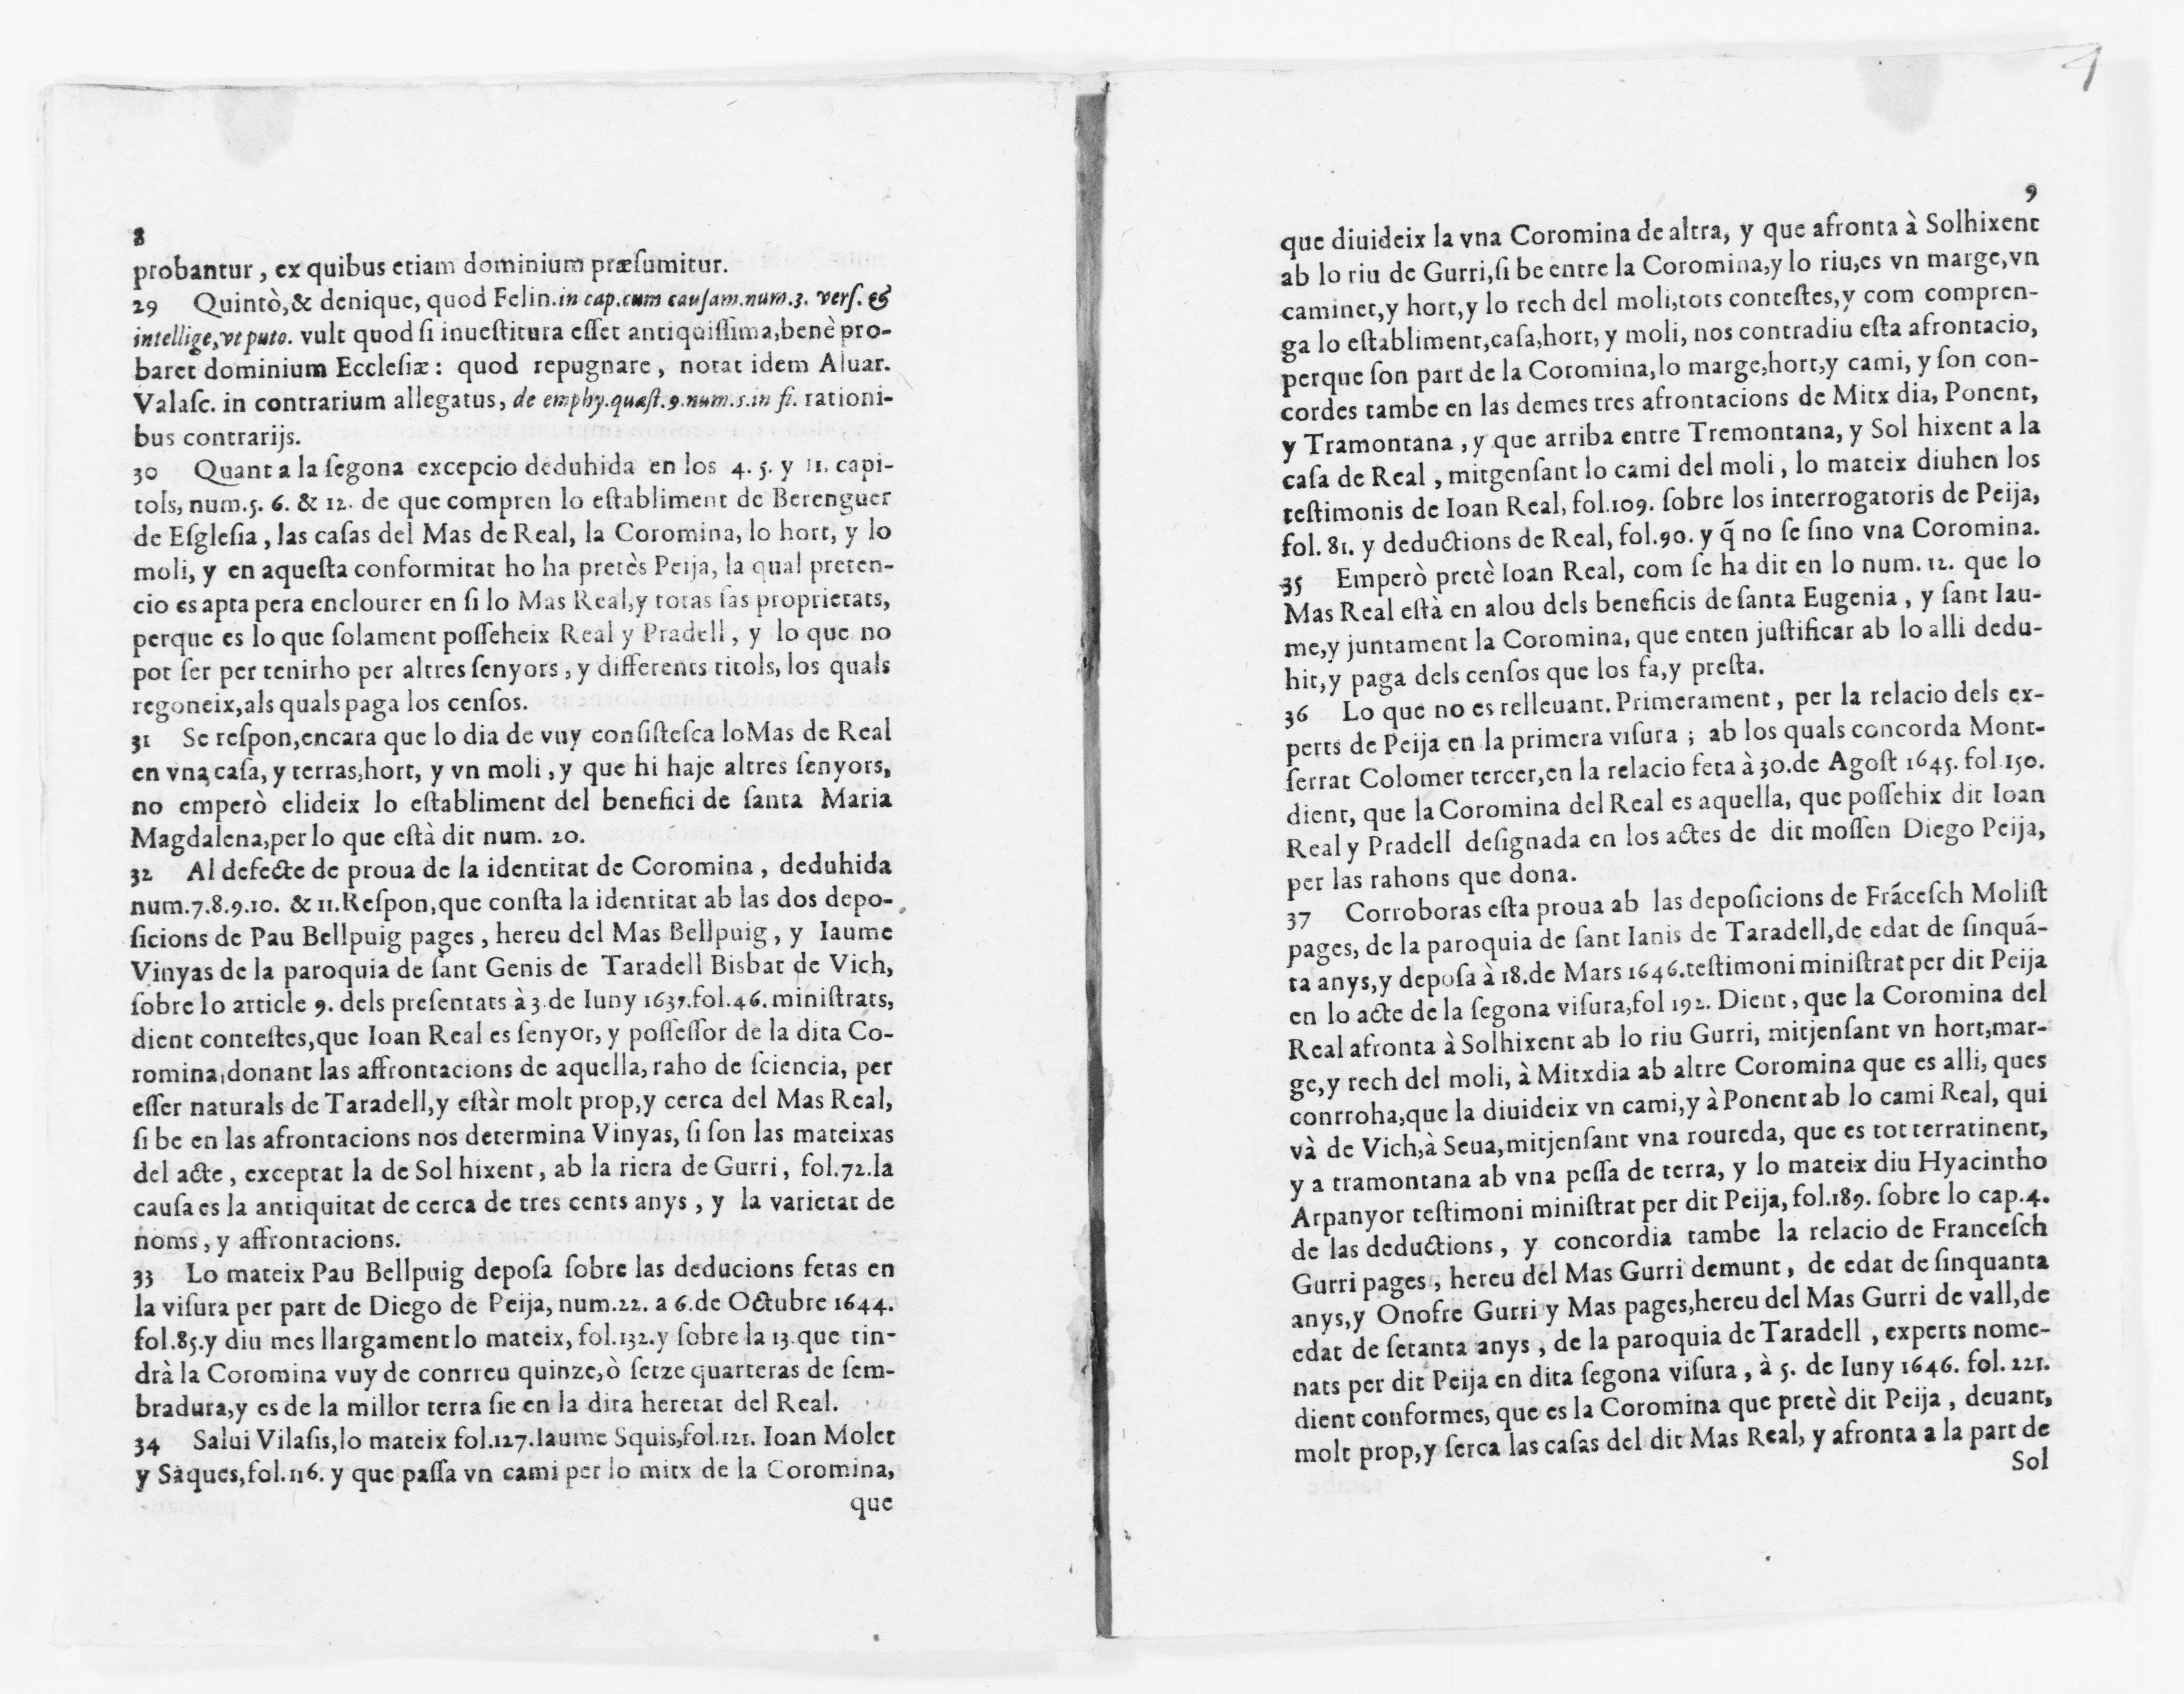 8
probantur, ex quibus etiam dominium præſumitur.
29 Quintò,& denique, quod Felin.in cap.cum cauſam.num.3. verſ. &
intellige,vt puto. vult quod ſi inueſtitura eſſet antiquiſſima,benè pro-
baret dominium Eccleſiæ: quod repugnare, notat idem Aluar.
Valaſc. in contrarium allegatus, de emphy.quæſt.9.num.5.in fi. rationi-
bus contrarijs.
30 Quant a la ſegona excepcio deduhida en los 4. 5. y 11. capi-
tols, num.5. 6. & 12. de que compren lo eſtabliment de Berenguer
de Eſgleſia, las caſas del Mas de Real, la Coromina, lo hort, y lo
moli, y en aqueſta conformitat ho ha pretès Peija, la qual preten-
cio es apta pera enclourer en ſi lo Mas Real,y totas ſas proprietats,
perque es lo que ſolament poſſeheix Real y Pradell, y lo que no
pot ſer per tenirho per altres ſenyors, y differents titols, los quals
regoneix,als quals paga los cenſos.
31 Se reſpon,encara que lo dia de vuy conſiſteſca lo Mas de Real
en vna caſa, y terras,hort, y vn moli, y que hi haje altres ſenyors,
no emperò elideix lo eſtabliment del benefici de ſanta Maria
Magdalena,per lo que eſtà dit num. 20.
32 Al defecte de proua de la identitat de Coromina, deduhida
num.7.8.9.10. & 11.Reſpon,que conſta la identitat ab las dos depo-
ſicions de Pau Bellpuig pages, hereu del Mas Bellpuig, y Iaume
Vinyas de la paroquia de ſant Genis de Taradell Bisbat de Vich,
ſobre lo article 9. dels preſentats à 3.de Iuny 1637.fol.46.miniſtrats,
dient conteſtes,que Ioan Real es ſenyor, y poſſeſſor de la dita Co-
romina,donant las affrontacions de aquella, raho de ſciencia, per
eſſer naturals de Taradell,y eſtàr molt prop,y cerca del Mas Real,
ſi be en las afrontacions nos determina Vinyas, ſi ſon las mateixas
del acte, exceptat la de Sol hixent, ab la riera de Gurri, fol.72.la
cauſa es la antiquitat de cerca de tres cents anys, y la varietat de
noms, y affrontacions.
33 Lo mateix Pau Bellpuig depoſa ſobre las deducions fetas en
la viſura per part de Diego de Peija, num.22. a 6.de Octubre 1644.
fol.85.y diu mes llargament lo mateix, fol.132.y ſobre la 13.que tin-
drà la Coromina vuy de conrreu quinze,ò ſetze quarteras de ſem-
bradura,y es de la millor terra ſie en la dita heretat del Real.
34 Salui Vilaſis,lo mateix fol.127.Iaume Squis,fol.121. Ioan Molet
y Sàques,fol.116. y que paſſa vn cami per lo mitx de la Coromina,
que
9
que diuideix la vna Coromina de altra, y que afronta à Solhixent
ab lo riu de Gurri,ſi be entre la Coromina,y lo riu,es vn marge,vn
caminet,y hort,y lo rech del moli,tots conteſtes,y com compren-
ga lo eſtabliment,caſa,hort, y moli, nos contradiu eſta afrontacio,
perque ſon part de la Coromina,lo marge,hort,y cami, y ſon con-
cordes tambe en las demes tres afrontacions de Mitx dia, Ponent,
y Tramontana, y que arriba entre Tremontana, y Sol hixent a la
caſa de Real, mitgenſant lo cami del moli, lo mateix diuhen los
teſtimonis de Ioan Real, fol.109. ſobre los interrogatoris de Peija,
fol. 81. y deductions de Real, fol.90. y q̃ no ſe ſino vna Coromina.
35 Emperò pretè Ioan Real, com ſe ha dit en lo num. 12. que lo
Mas Real eſtà en alou dels beneficis de ſanta Eugenia, y ſant Iau-
me,y juntament la Coromina, que enten juſtificar ab lo alli dedu-
hit,y paga dels cenſos que los fa,y preſta.
36 Lo que no es relleuant. Primerament, per la relacio dels ex-
perts de Peija en la primera viſura; ab los quals concorda Mont-
ſerrat Colomer tercer,en la relacio feta à 30.de Agoſt 1645. fol.150.
dient, que la Coromina del Real es aquella, que poſſehix dit Ioan
Real y Pradell deſignada en los actes de dit moſſen Diego Peija,
per las rahons que dona.
37 Corroboras eſta proua ab las depoſicions de Frãceſch Moliſt
pages, de la paroquia de ſant Ianis de Taradell,de edat de ſinquã-
ta anys,y depoſa à 18.de Mars 1646.teſtimoni miniſtrat per dit Peija
en lo acte de la ſegona viſura,fol 192. Dient, que la Coromina del
Real afronta à Solhixent ab lo riu Gurri, mitjenſant vn hort,mar-
ge,y rech del moli, à Mitxdia ab altre Coromina que es alli, ques
conrroha,que la diuideix vn cami,y à Ponent ab lo cami Real, qui
và de Vich,à Seua,mitjenſant vna roureda, que es tot terratinent,
y a tramontana ab vna peſſa de terra, y lo mateix diu Hyacintho
Arpanyor teſtimoni miniſtrat per dit Peija, fol.189. ſobre lo cap.4.
de las deductions, y concordia tambe la relacio de Franceſch
Gurri pages, hereu del Mas Gurri demunt, de edat de ſinquanta
anys,y Onofre Gurri y Mas pages,hereu del Mas Gurri de vall,de
edat de ſetanta anys, de la paroquia de Taradell, experts nome-
nats per dit Peija en dita ſegona viſura, à 5. de Iuny 1646. fol. 221.
dient conformes, que es la Coromina que pretè dit Peija, deuant,
molt prop,y ſerca las caſas del dit Mas Real, y afronta a la part de
Sol